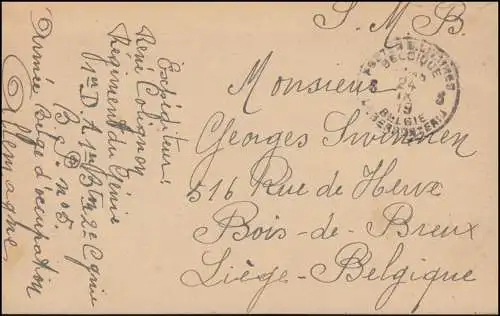 S. M. B.
POSTES MILITAIRES
BELGIQUE
24
IX
19
5 5
BELGIE
Monsieur
Georges Swinnen
516 Rue de Herve
Bois-de-Breux
Liège-Belgique
Expéditeur:
René Colignon
Régiment du Génie
1re D A 1er Btn 2e Cgnie
B no 5.
Armée belge d'occupation
Allemagne